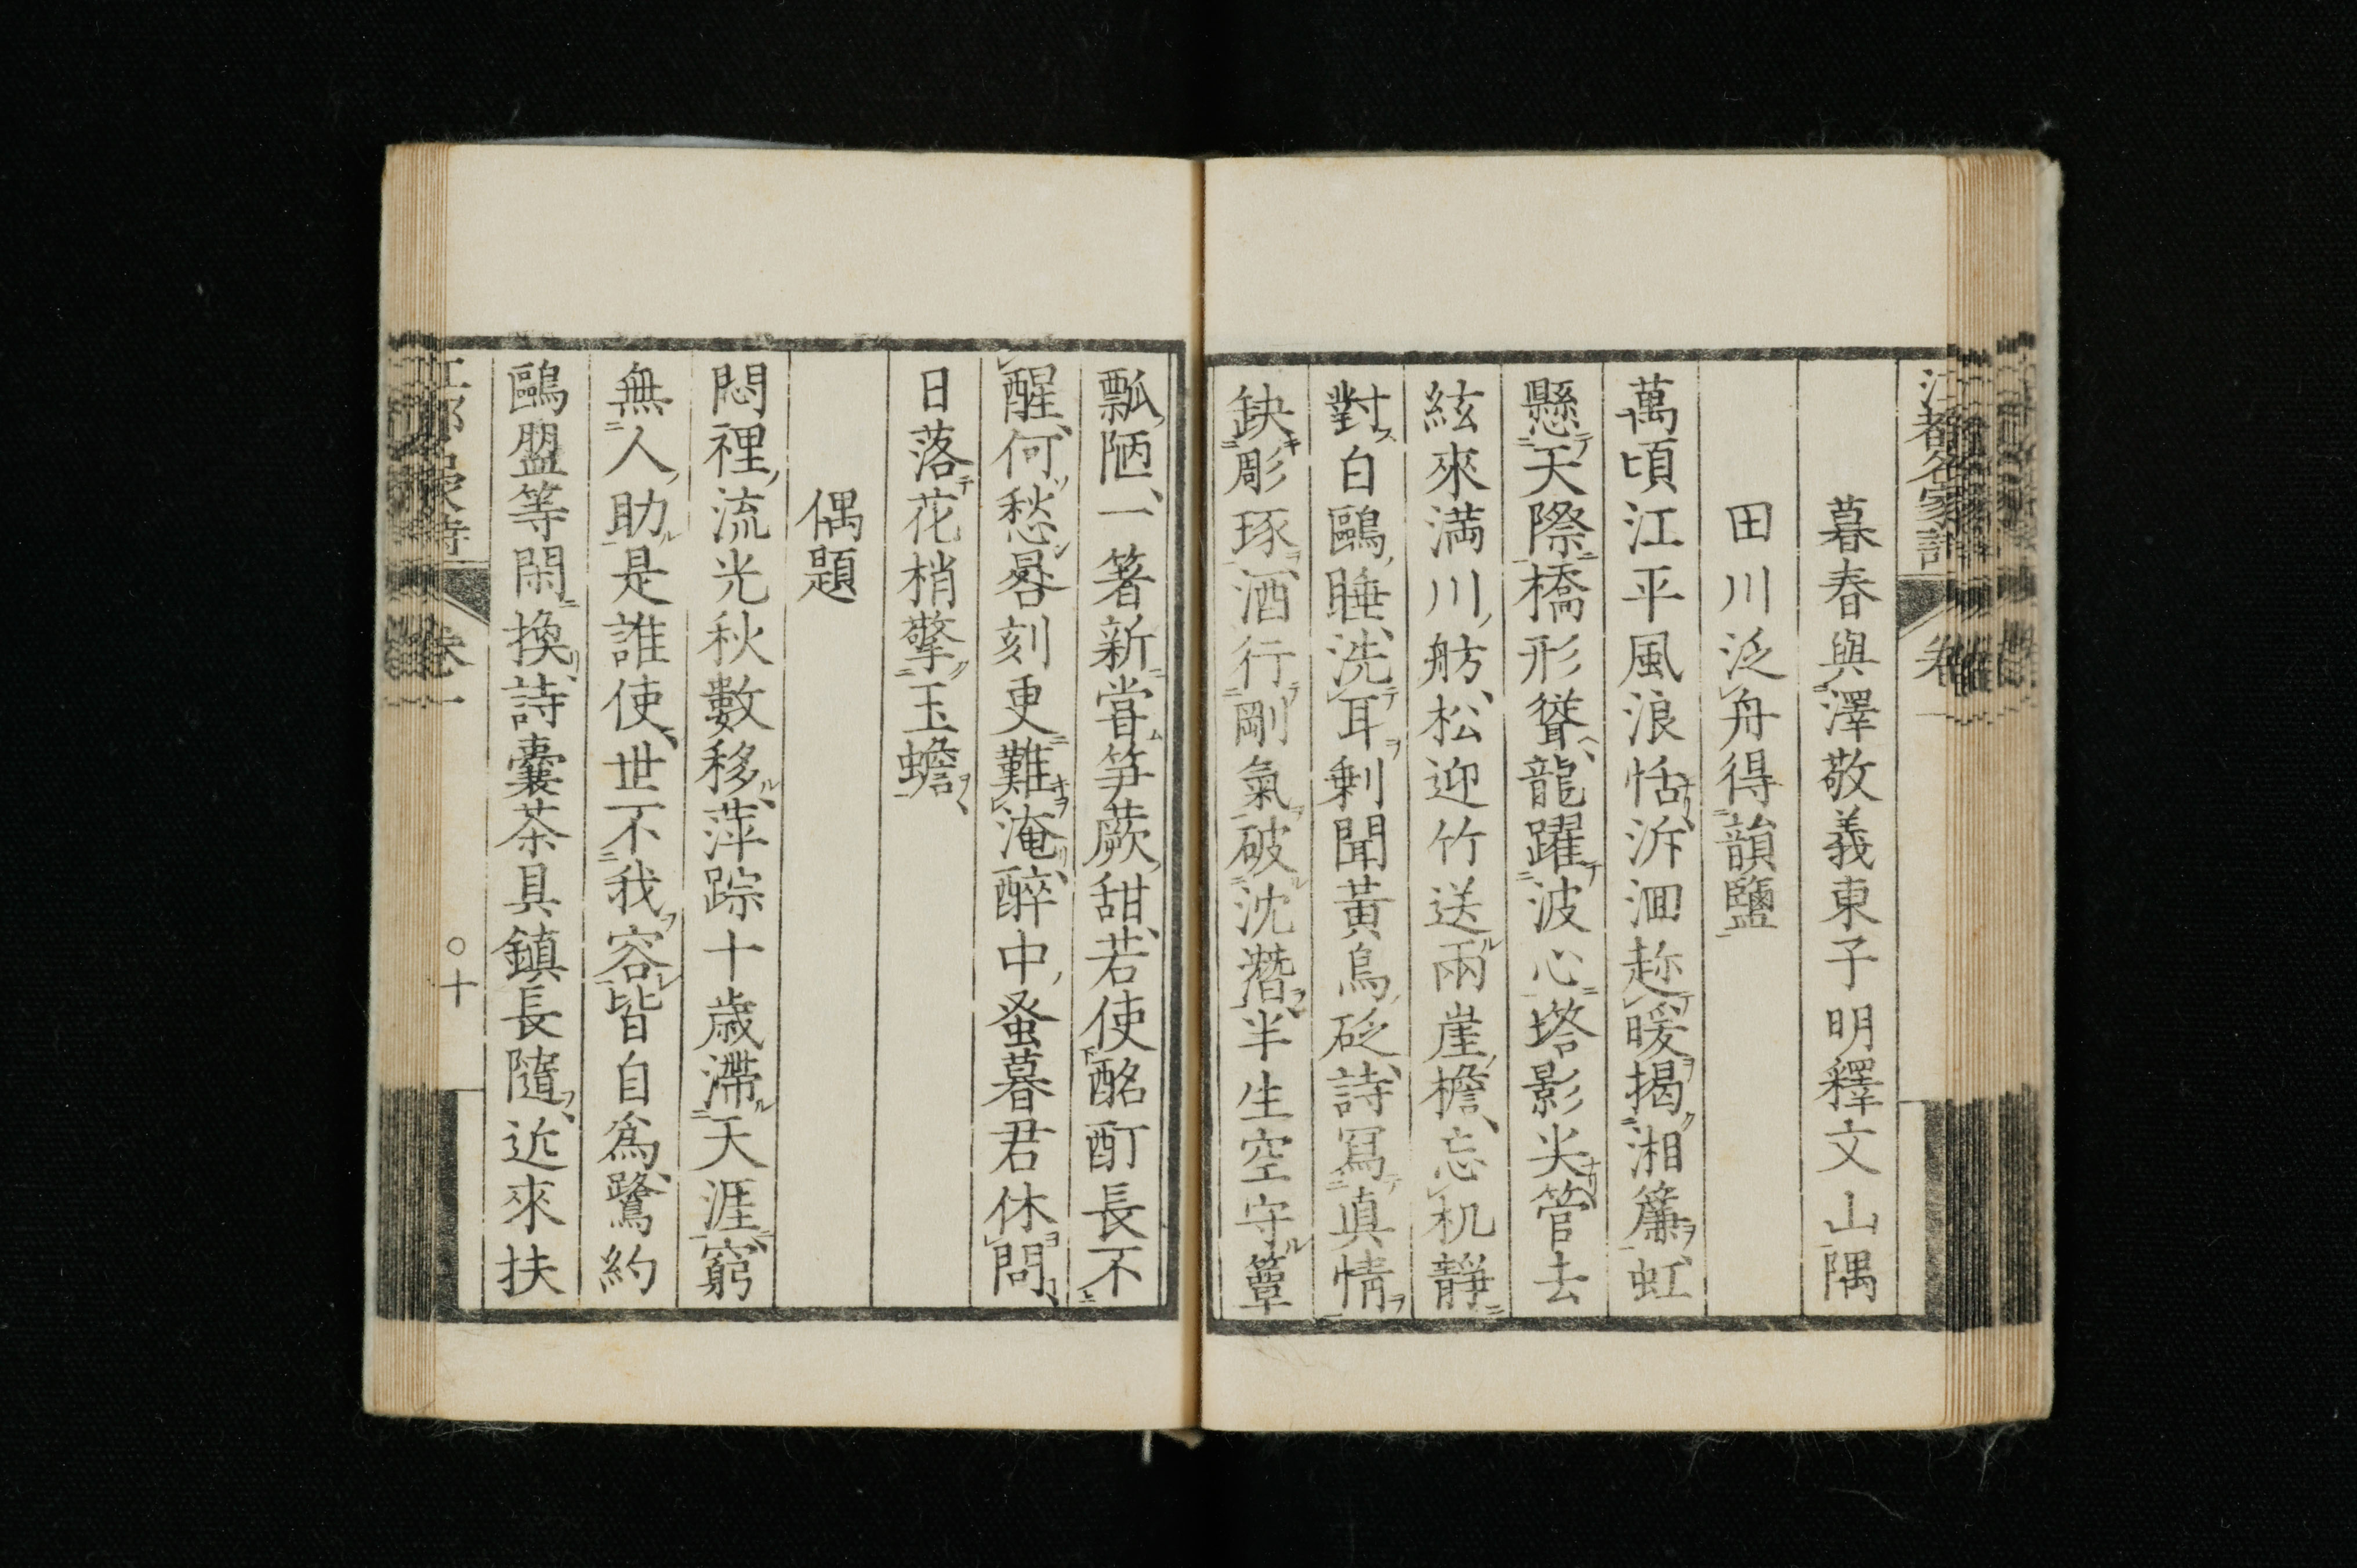 江都名家詩
卷一
暮春與澤敬義東子明釋文山隅
田川泛舟得韻鹽
萬頃江平風浪恬泝洄趂暖揭湘簾虹
懸天際橋形聳龍躍波心塔影尖管去
絃來満川舫松迎竹送兩崖檐忘机靜
對白鷗睡洗耳剰聞黃鳥砭詩冩眞情
缺彫琢酒行剛氣破沈潛半生空守簞
瓢陋一箸新嘗笋蕨甜若使酩酊長不
醒何愁晷刻更難淹醉中蚤暮君休問
日落花梢擎玉蟾
偶題
悶裡流光秋數移萍踪十歳滯天涯窮
無人助是誰使世不我容皆自爲鷺約
鷗盟等閑換詩囊茶具鎮長隨近來扶
江都名家詩
卷一
〇十